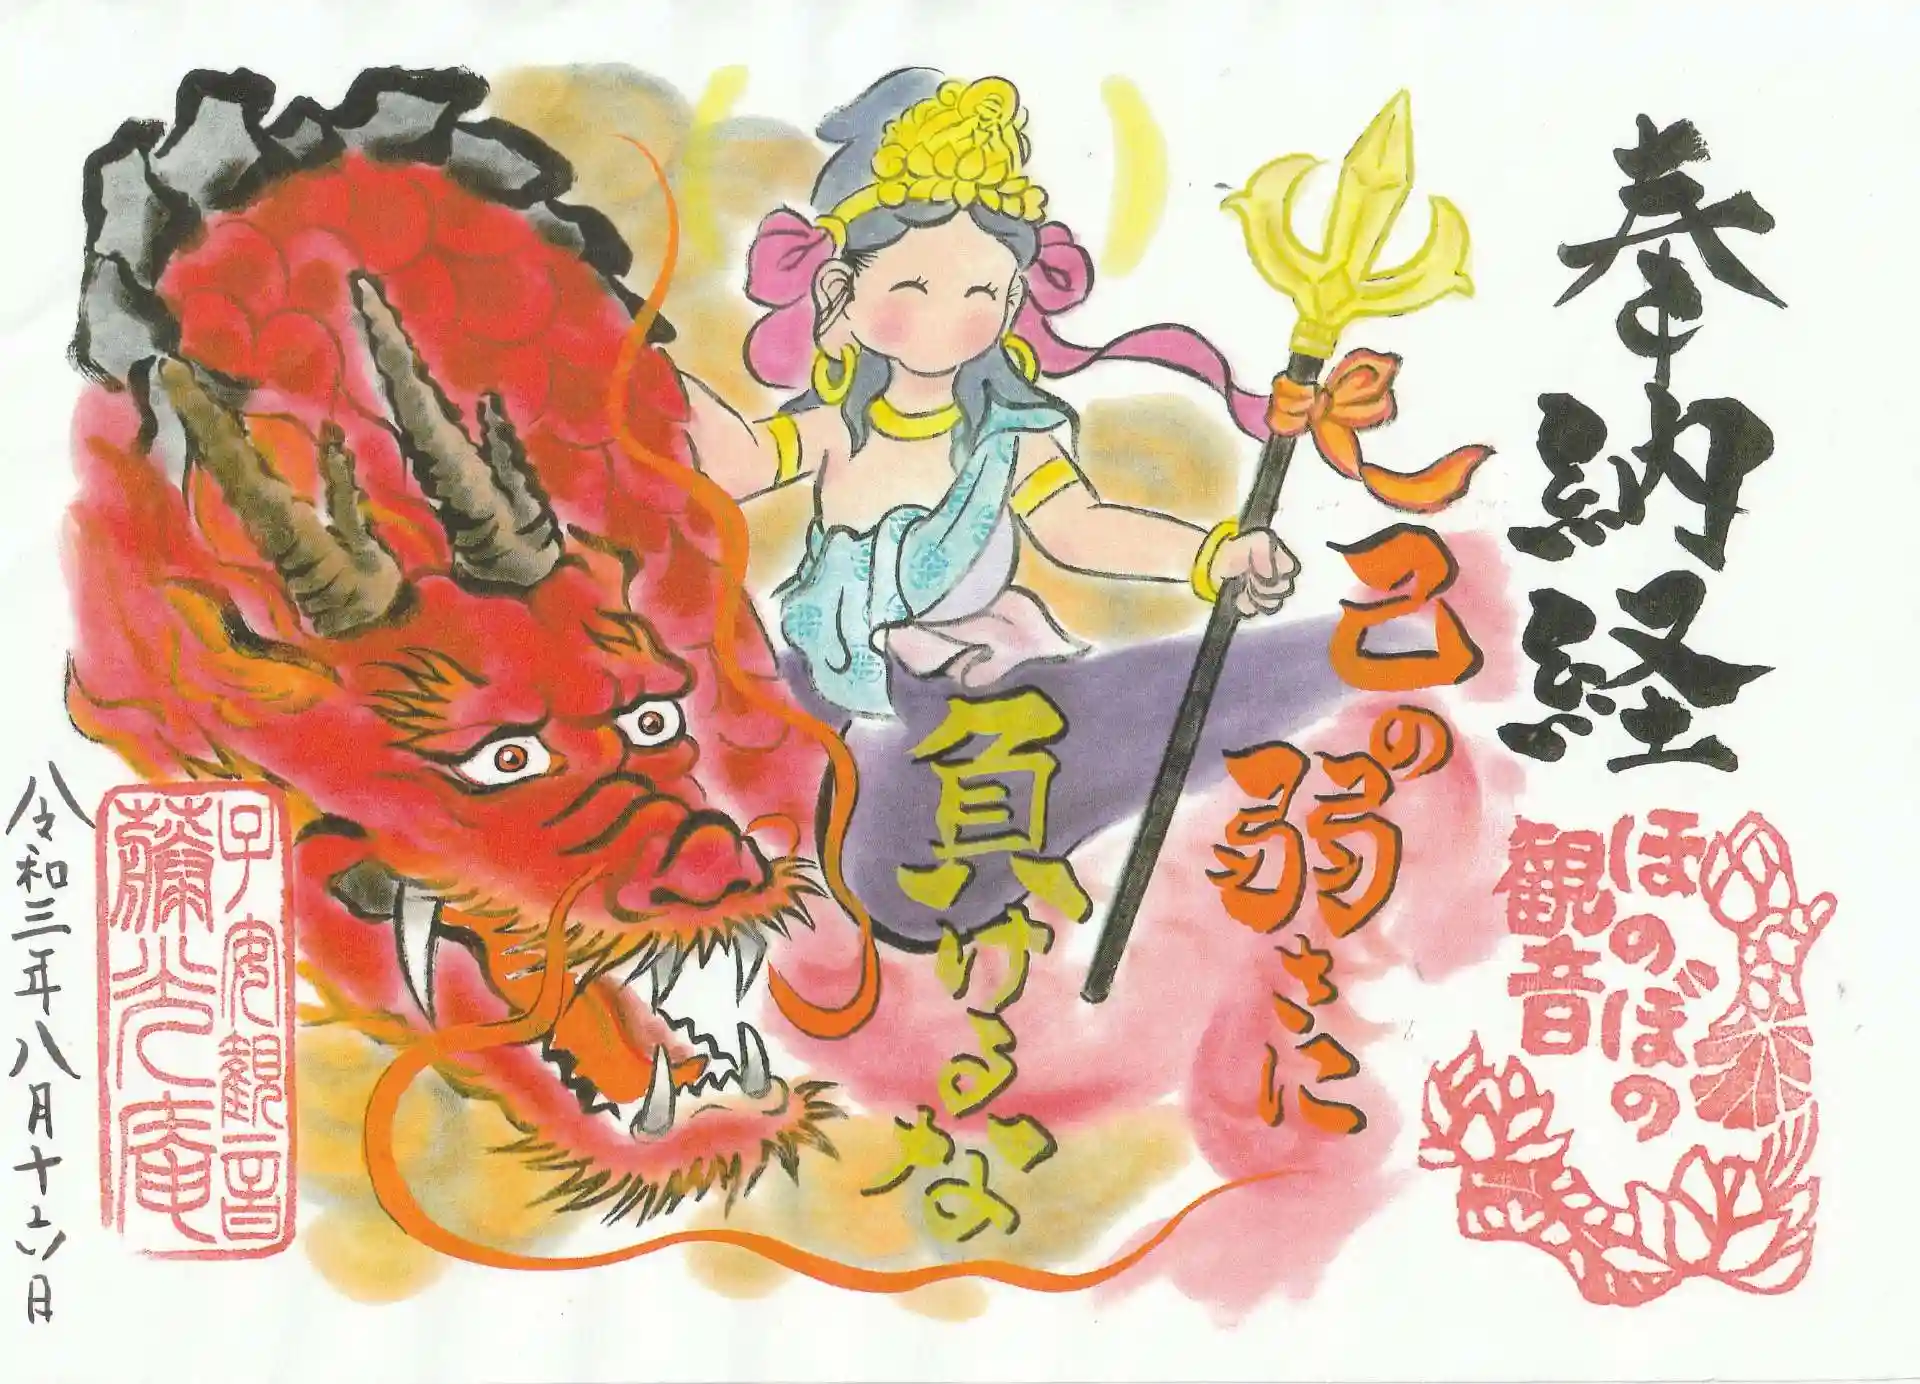 奉納経
ほのぼの
観音
己の弱さに
負けるな
子安観音
彌光庵
令和三年八月十六日